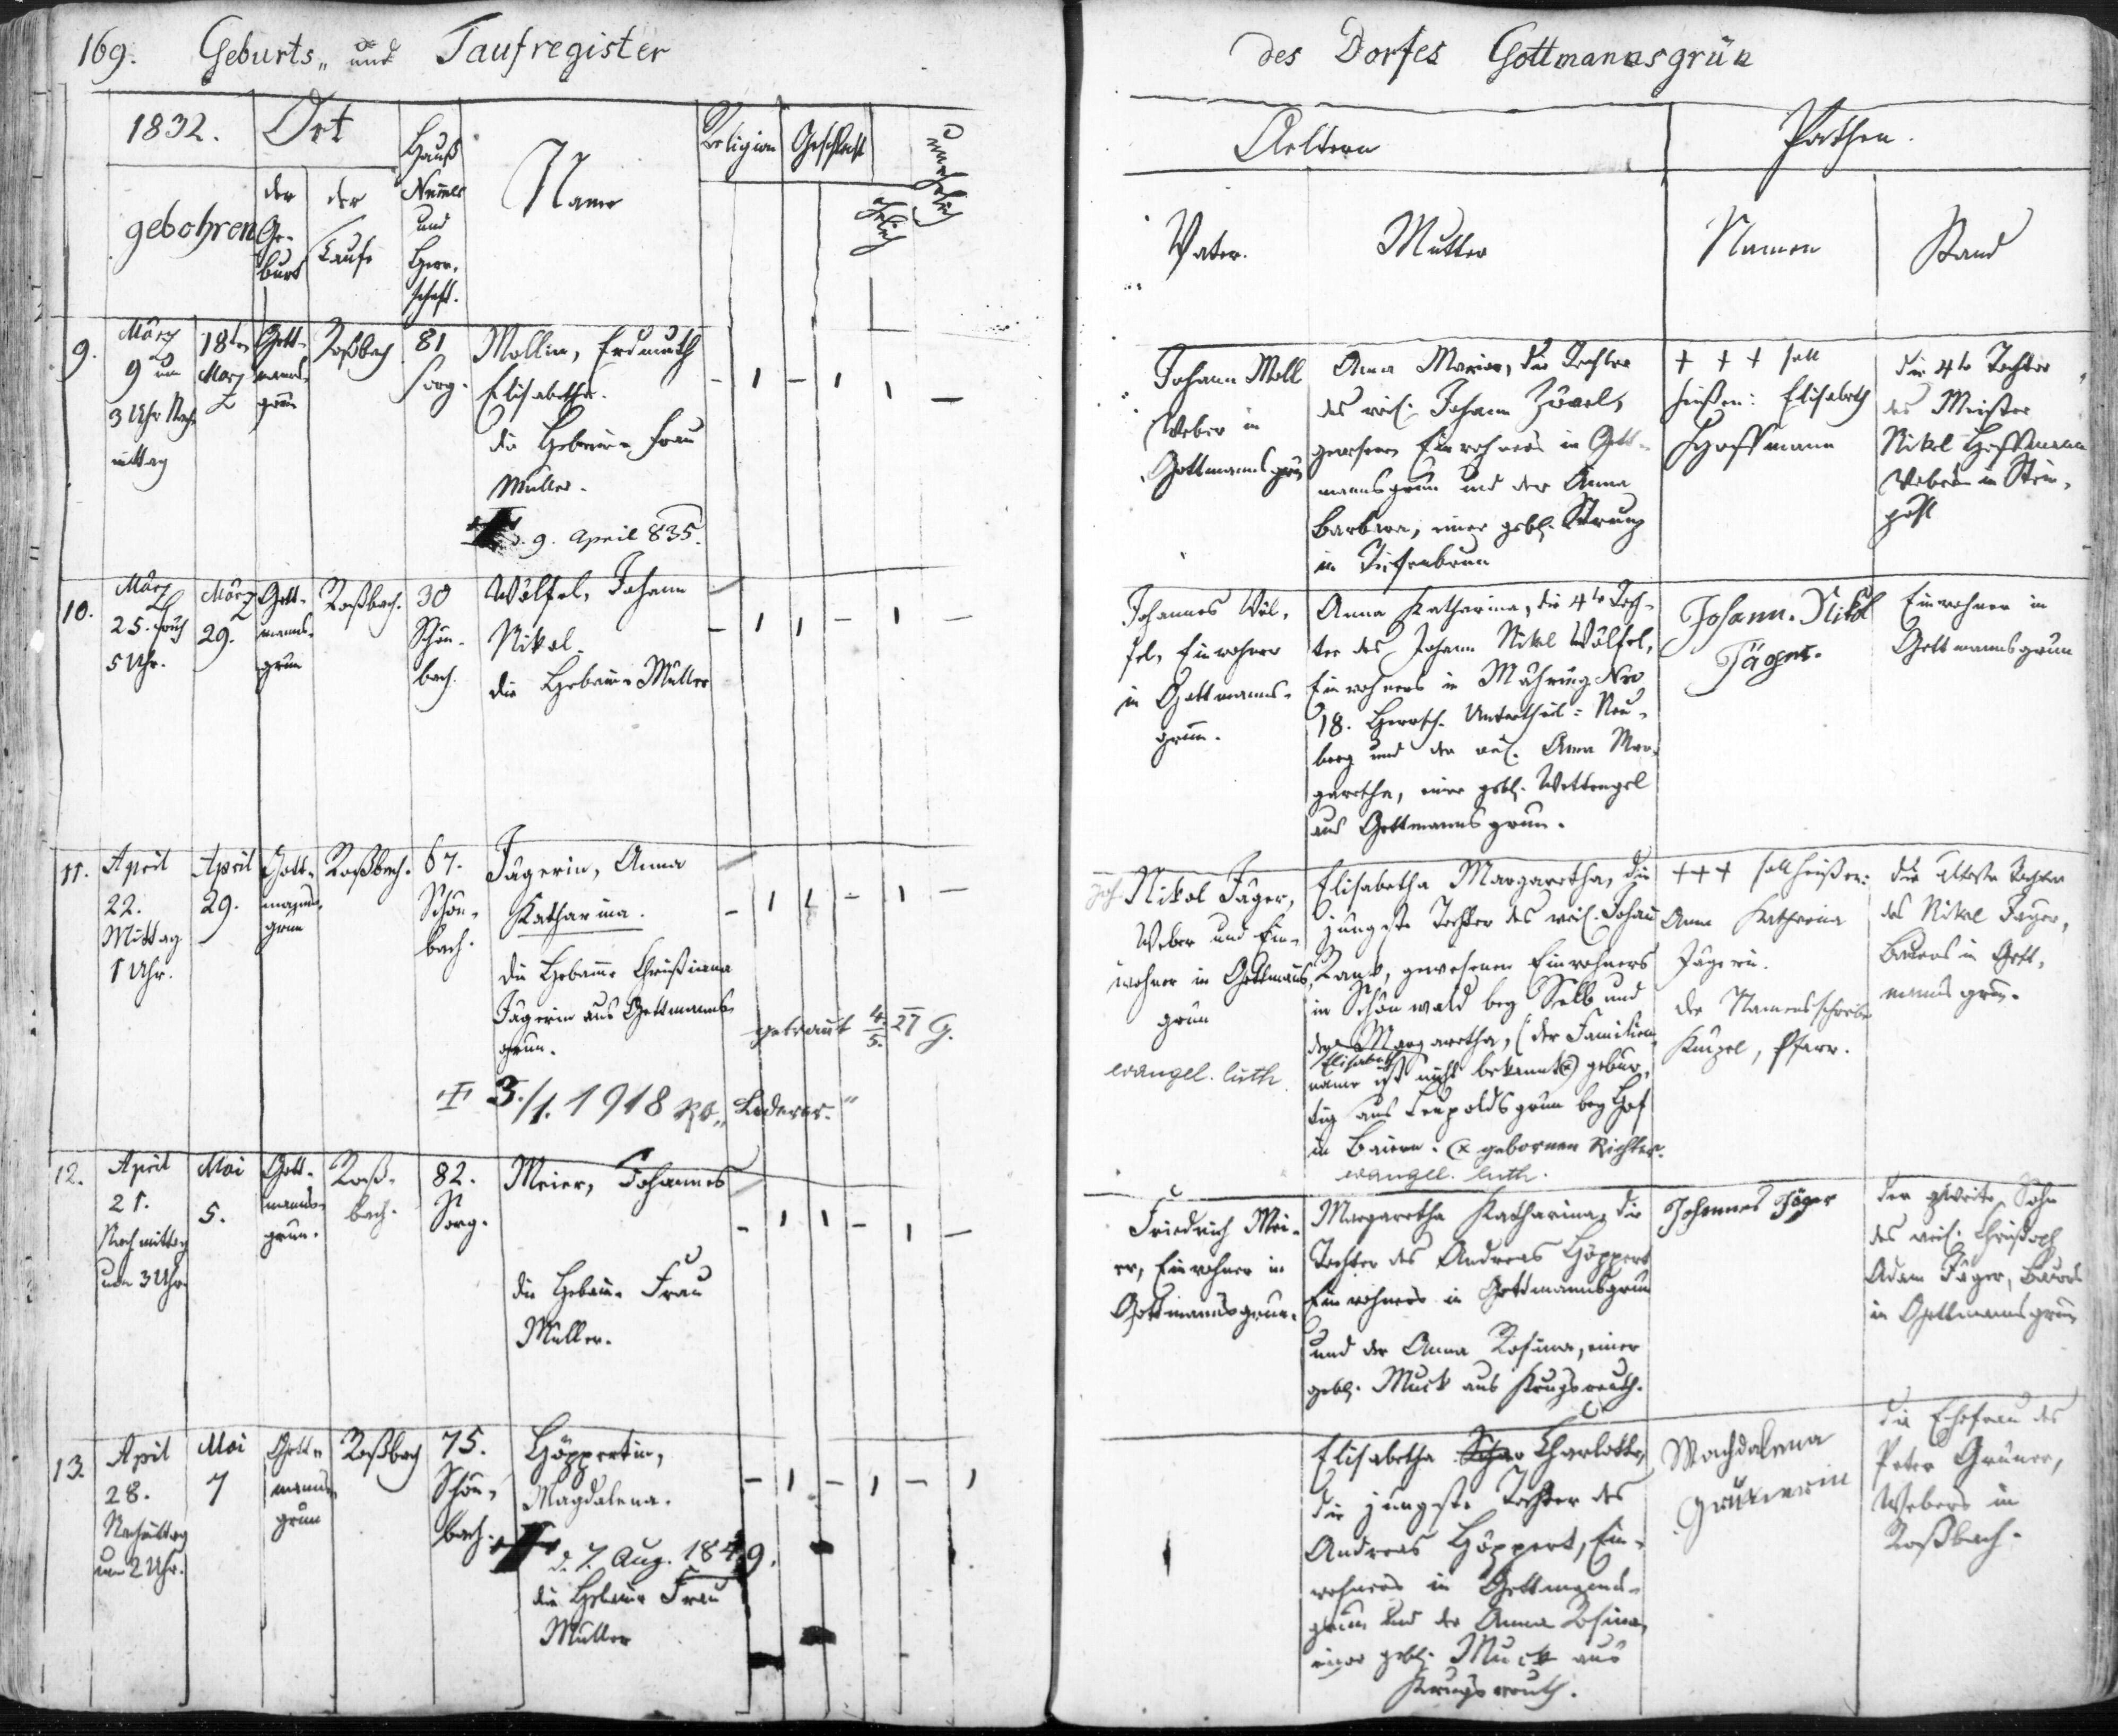 169. Geburts- und Taufregister
des Dorfes Gottmannsgrün
1832. Ort
Hauß
Numer
und
Herr-
schaft.
Name
Religion Geschlecht
gebohren
der
Ge-
burt
der
Taufe
Aeltern
Pathen.
Vater.
Mutter
Namen
Stand
9.
März
9 um
3 Uhr Nach
mittag
18ten
März
Gott-
manns-
grün
Roßbach
81
Sorg.
Mollin, Erdmuth
Elisabetha.
die Hebamme Frau
Müller.
d. 9. April 835.
Johann Moll
Weber in
Gottmannsgrün
Anna Maria, die Tochter
des weil. Johann
gewesenen Einwohners in Gott-
mannsgrün und der Anna
Barbara, einer gebl. Strunz
in Tiefenbrun
+ + + soll
heißen: Elisabeth
Hoffmann
die 4te Tochter
des Meister
Nikol Hoffmann
Weber in Stein-
pöhl
10.
März
25. früh
5 Uhr.
März
29.
Gott-
manns-
grün
Roßbach.
30
Schön-
bach.
Wölfel, Johann
Nikol.
die Hebamme Müller
Johannes Wöl-
fel, Einwohner
in Gottmanns-
grün.
Anna Katharina, die 4te Toch-
ter des Johann Nikol Wölfel,
Einwohners in Mähring Nro
18. Herrsch. Untertheil Neu-
berg und der weil. Anna Mar-
garetha, einer gebl. Wettengel
aus Gottmannsgrün.
Johann. Nikol
Jäger.
Einwohner in
Gottmannsgrün
11.
April
22.
Mittag
1 Uhr.
April
29.
Gott-
manns-
grün
Roßbach.
67.
Schön-
bach.
Jägerin, Anna
Katharina.
die Hebamme Christiana
Jägerin aus Gottmanns-
grün.
getraut 4./5. 27 G.
3./1. 1918 Lederer."
Joh. Nikol Jäger,
Weber und Ein-
wohner in Gottmanns-
grün
evangel. luth.
Elisabetha Margaretha, die
jüngste Tochter des weil. Johann
Rank, gewesenen Einwohners
in Schönwald bey Selb und
der Margaretha, (der Familien-
Elisabeth
name ist nicht bekannt x) gebür-
tig aus Leupoldsgrün bey Hof
in Baiern. (x gebornen Richter.
evangel. luth.
+++ soll heißen:
Anna Katharina
Jägerin.
der Namensschreiber
Künzel, Pfarr.
die älteste Tochter
des Nikol Jäger,
Bauers in Gott-
mannsgrün.
12.
April
21.
Nachmittag
um 3 Uhr.
Mai
5.
Gott-
manns-
grün.
Roß-
bach.
82.
Sorg.
Meier, Johannes
die Hebamme Frau
Müller.
Friedrich Mei-
er, Einwohner in
Gottmannsgrün.
Margaretha Katharina, die
Tochter des Andreas Höppert
Einwohners in Gottmannsgrün
und der Anna Rosina, einer
gebl. Muck aus Krugsreuth.
Johannes Jäger
der zweite Sohn
des weil. Christoph
Adam Jäger, Bauers
in Gottmannsgrün
13.
April
28.
Nachmittag
um 2 Uhr.
Mai
7
Gott-
manns-
grün
Roßbach
75.
Schön-
bach.
Höppertin,
Magdalena.
d. 7. Aug. 1849.
die Hebamme Frau
Müller
Elisabetha Charlotte,
die jüngste Tochter des
Andreas Höppert, Ein-
wohners in Gottmanns-
grün und der Anna Rosina,
einer gebl. Muck aus
Krugsreuth.
Machdalena
Grünerin
die Ehefrau des
Peter Grüner,
Webers in
Roßbach.